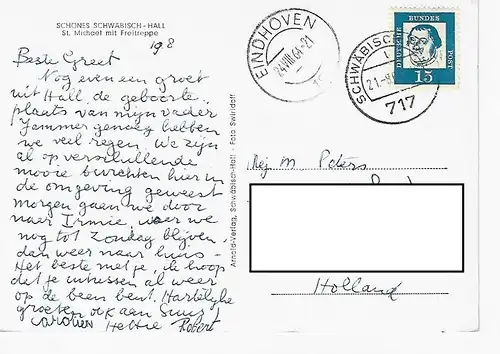 SCHÖNES SCHWÄBISCH-HALL
St. Michael mit Freitreppe
19 8
Beste Greet
Nog even een groet
uit Hall, de geboorte-
plaats van mijn vader
Jammer genoeg hebben
we veel regen. We zijn
al op verschillende
mooie burchten hier in
de omgeving geweest
morgen gaan we door
naar Irmie, waar we
nog tot Zondag blijven,
dan weer naar huis
Het beste met je, ik hoop
dat je intussen al weer
op de been bent. Hartelijke
groeten ook aan Suus!
Carolien Hettie Robert
Arnold-Verlag, Schwäbisch-Hall - Foto Swiridoff
EINDHOVEN
24 VIII 64-21
SCHWÄBISCH
21.-8
717
DEUTSCHE BUNDESPOST
15
Mej M Peters
Holland